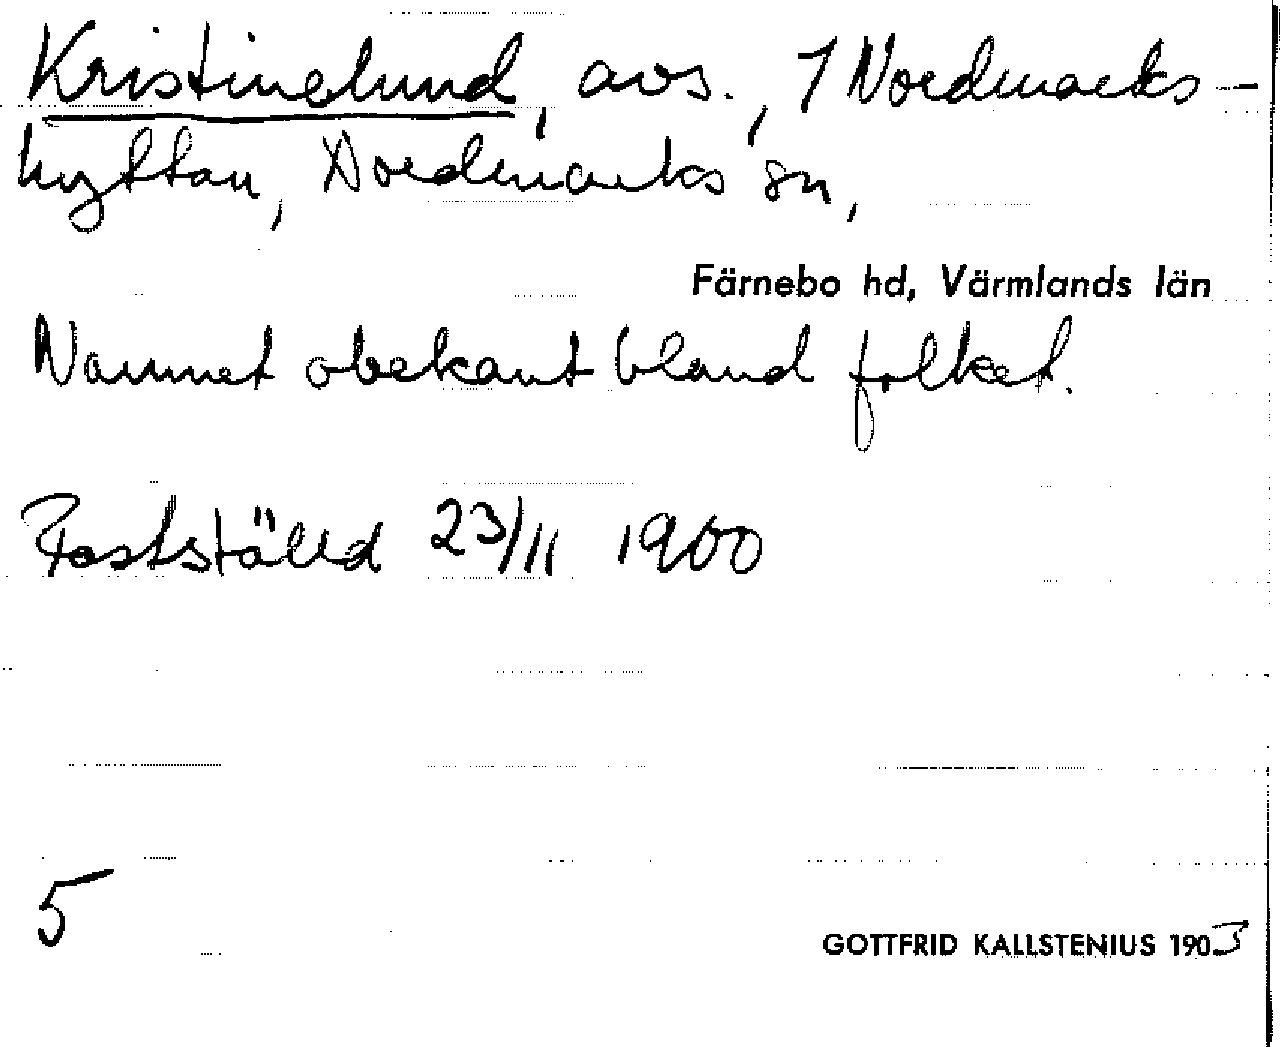 Kristinelund, avs., 1 Nordmarks-
hyttan, Nordmarks sn,
Färnebo hd, Värmlands län
Namnet obekant bland folket.
Fastställd 23/11 1900
5
GOTTFRID KALLSTENIUS 1903